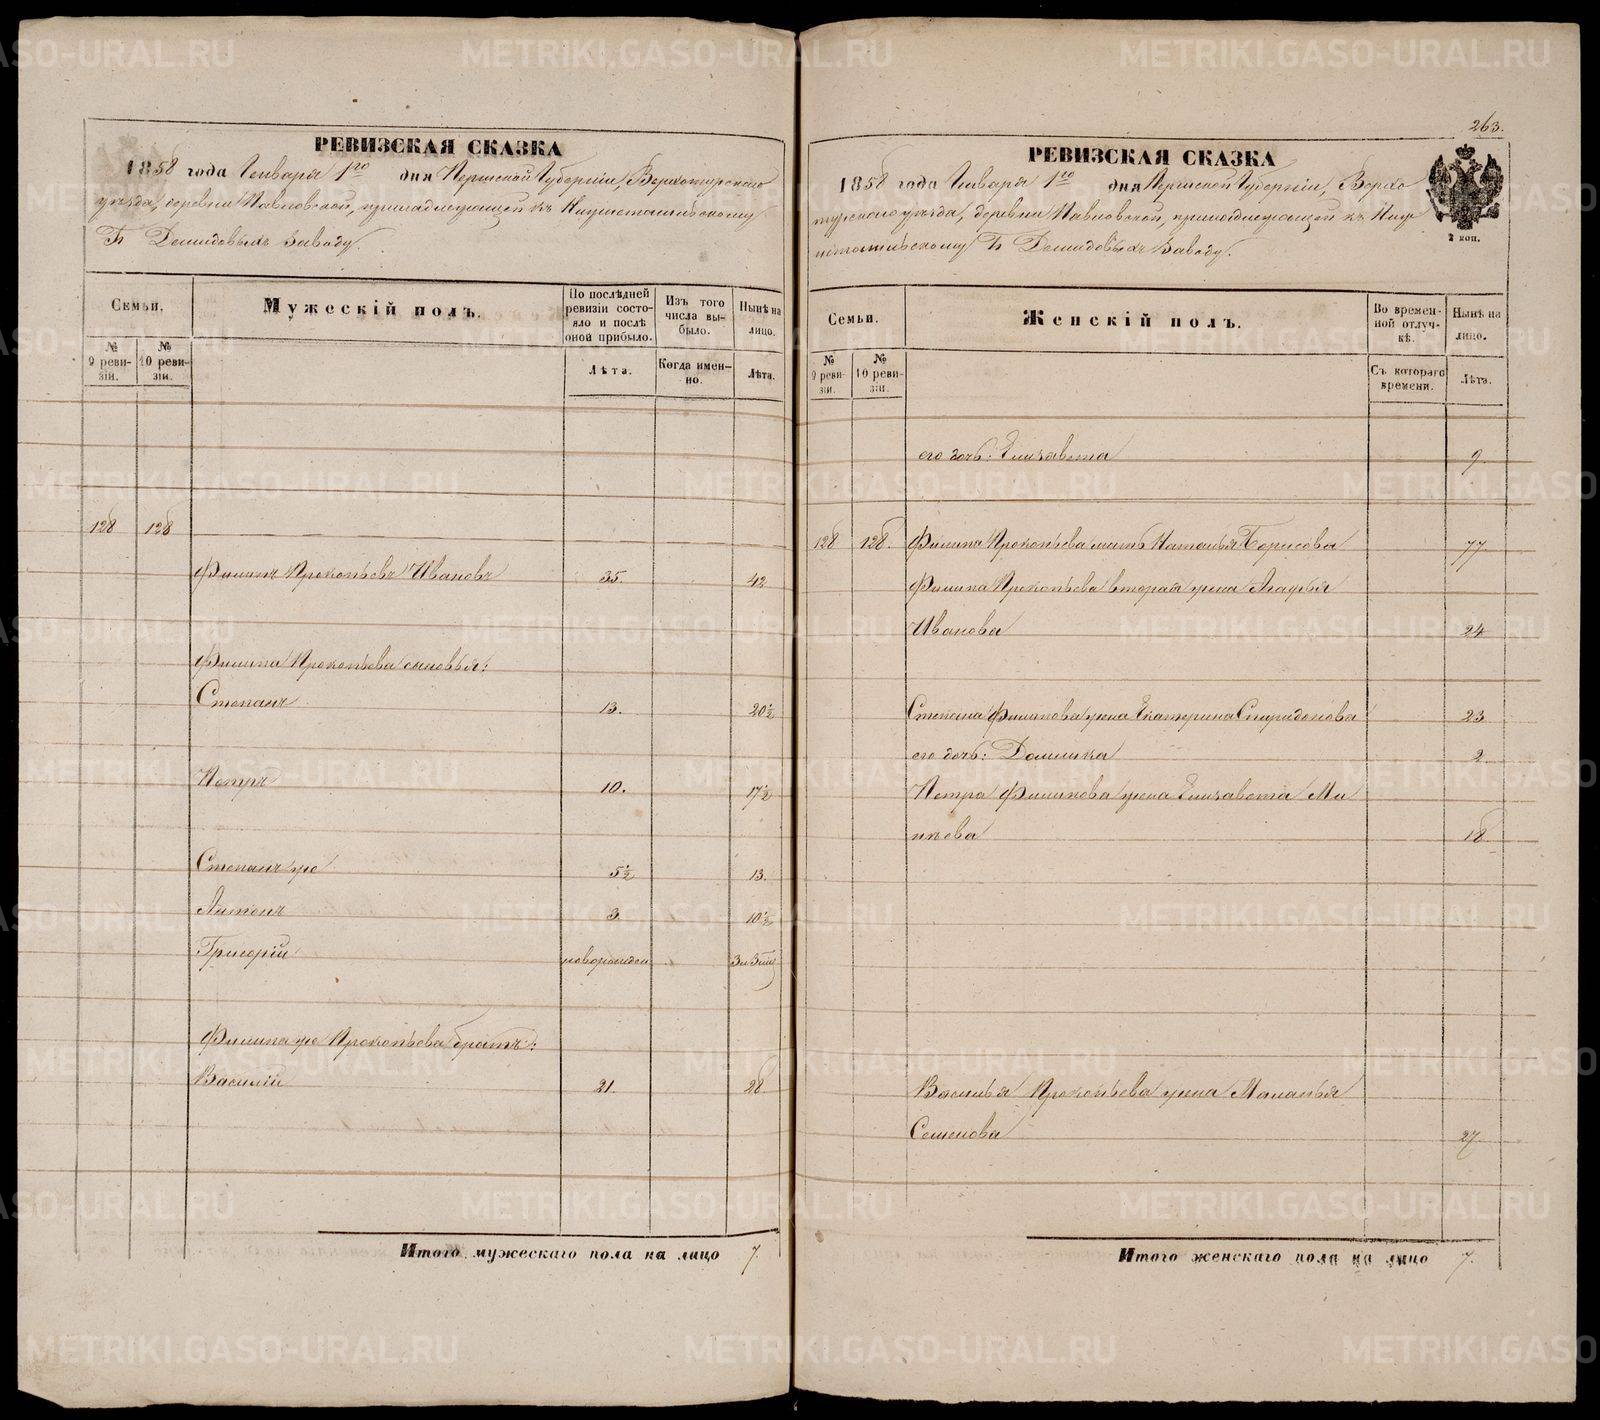 РЕВИЗСКАЯ СКАЗКА
1858 года Генваря 1го дня Пермской Губерніи, Верхотурскаго
уѣзда, деревни Павловской, принадлежащей къ Нижнетагильскому
Г. Демидовыхъ заводу.
Семьи.
Мужескій полъ.
По послѣдней ревизіи состояло и послѣ оной прибыло.
Изъ того числа выбыло.
Нынѣ на лицо.
№ 9 ревизіи.
№ 10 ревизіи.
Лѣта.
Когда именно.
Лѣта.
128 128
Филипъ Прокопьевъ Ивановъ 35. 42
Филипа Прокопьева сыновья:
Степанъ 13. 20½
Петръ 10. 17½
Степанъ же 5½ 13.
Антонъ 3. 10½
Григорій новорожден 3 и 3 мц
Филипа же Прокопьева братъ:
Василій 21. 28
Итого мужескаго пола на лицо 7.
263.
РЕВИЗСКАЯ СКАЗКА
1858 года Генваря 1го дня Пермской Губерніи, Верхо
турскаго уѣзда, деревни Павловской, принадлежащей къ Ниж
нетагильскому Г. Демидовыхъ заводу.
2 коп.
Семьи.
Женскій полъ.
Во временной отлучкѣ.
Нынѣ на лицо.
№ 9 ревизіи.
№ 10 ревизіи.
Съ котораго времени.
Лѣта.
его дочь: Елизавета 9
128 128. Филипа Прокопьева мать Наталья Борисова 77
Филипа Прокопьева вторая жена Агафья
Иванова 24
Степана Филипова жена Екатерина Спиридонова 23
его дочь: Домника 2
Петра Филипова жена Елизавета Ми
нѣева 18
Василья Прокопьева жена Маланья
Семенова 27
Итого женскаго пола на лицо 7.
METRIKI.GASO-URAL.RU